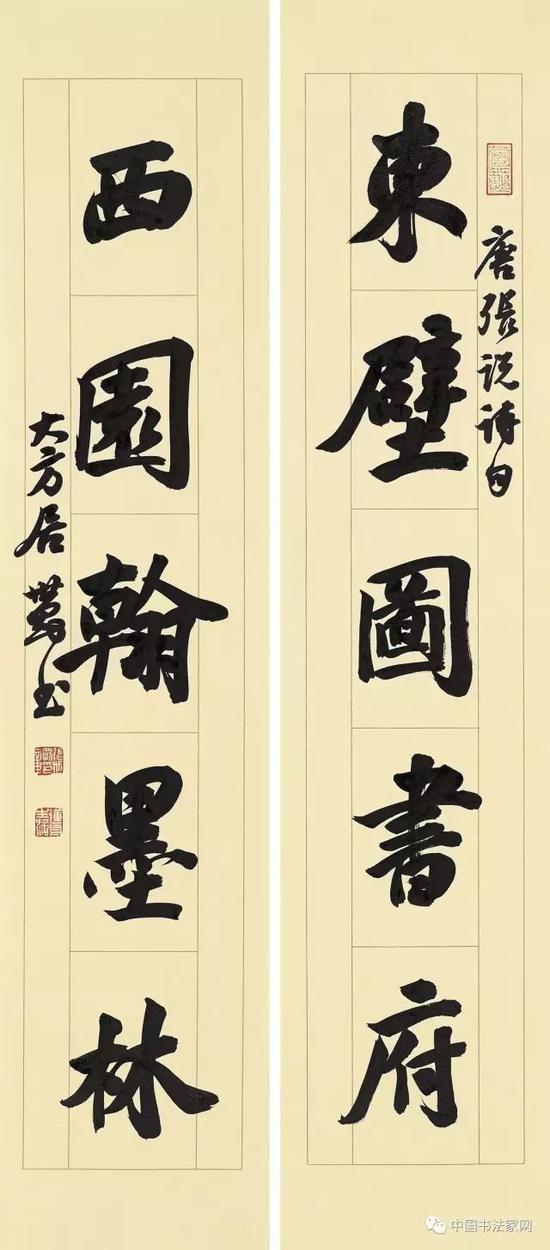 東壁圖書府
唐張说诗曰
西園翰墨林
大方居
书
中国书法家网